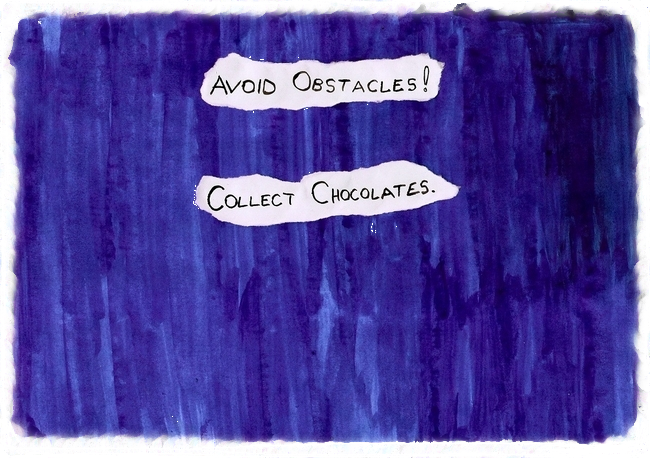 Avoid Obstacles!
Collect Chocolates.